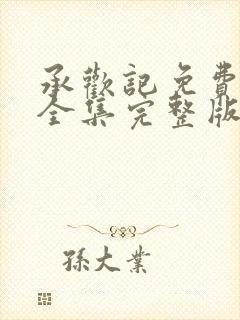 承歡記免費
全集完整版
孫大業